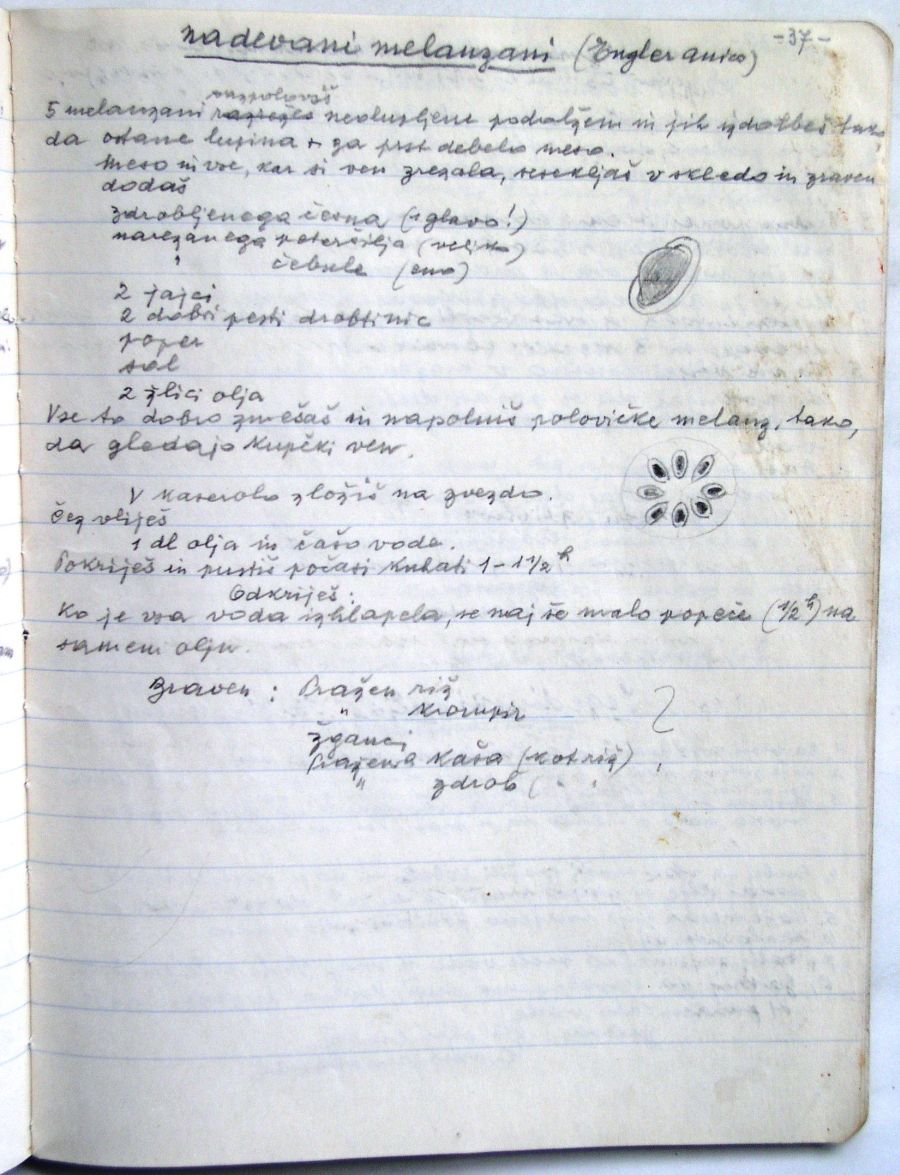 -37-
nadevani melanzani (Engleranico)
razpoloviš
5 melanzani razrežeš neolupljene podolžem in jih izdolbeš tako
da ostane lupina + za prst debelo meso.
Meso in vse, kar si ven zrezala, sesekljaš v skledo in zraven
dodaš
zdrobljenega česna (1 glavo!)
narezanega peteršilja (veliko)
" čebule (eno)
2 jajci
2 dobri pesti drobtinic
poper
sol
2 žlici olja
Vse to dobro zmešaš in napolniš polovičke melanz, tako,
da gledajo kupčki ven.
V kaserolo zložiš na zvezdo.
Čez vliješ
1 dl olja in čašo vode.
Pokriješ in pustiš počasi kuhati 1-1 1/2 h
Odkriješ:
Ko je vsa voda izhlapela, se naj še malo popeče (1/2 h) na
samem olju.
Zraven: Pražen riž
" krompir
žganci
Pražena kaša (kot riž)
" zdrob ( " "